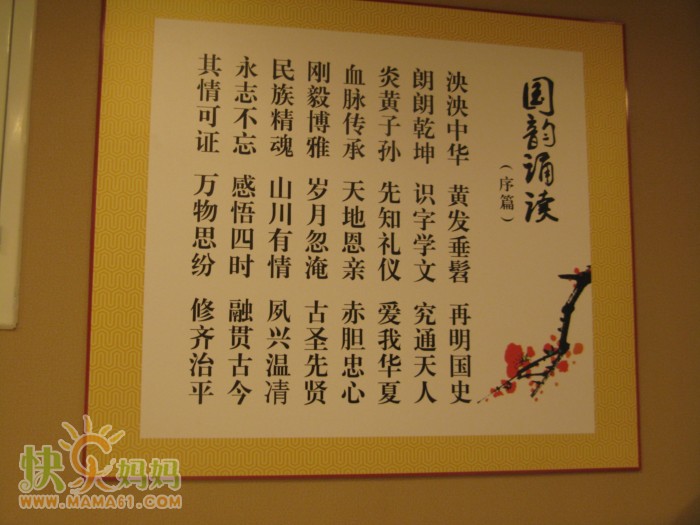 国韵诵读
（序篇）
泱泱中华 黄发垂髫 再明国史
朗朗乾坤 识字学文 究通天人
炎黄子孙 先知礼仪 爱我华夏
血脉传承 天地恩亲 赤胆忠心
刚毅博雅 岁月忽淹 古圣先贤
民族精魂 山川有情 夙兴温凊
永志不忘 感悟四时 融贯古今
其情可证 万物思纷 修齐治平
快乐妈妈
WWW.MAMA61.COM